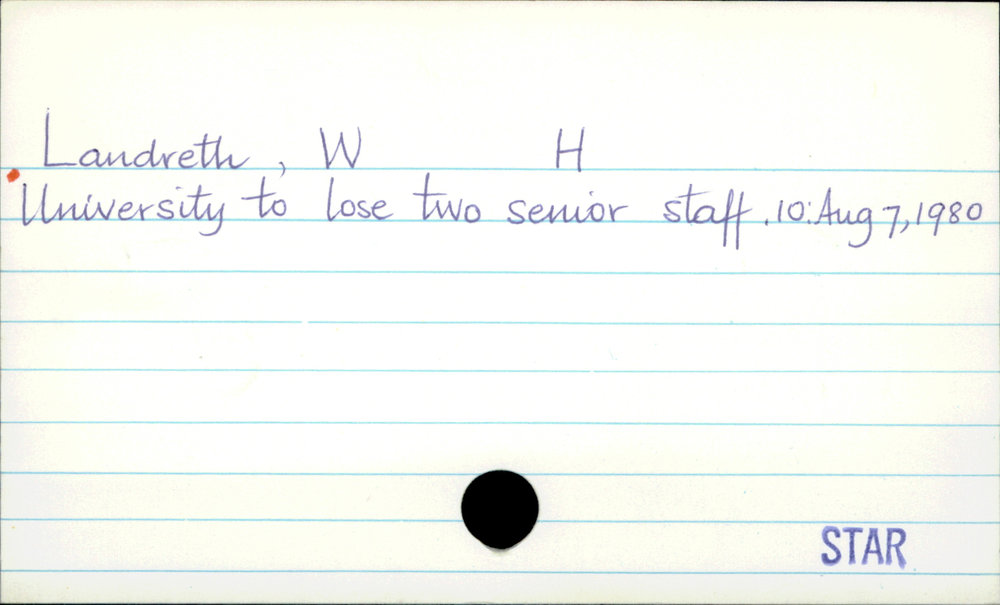 Landreth, W H
University to lose two senior staff. 10: Aug 7, 1980
STAR